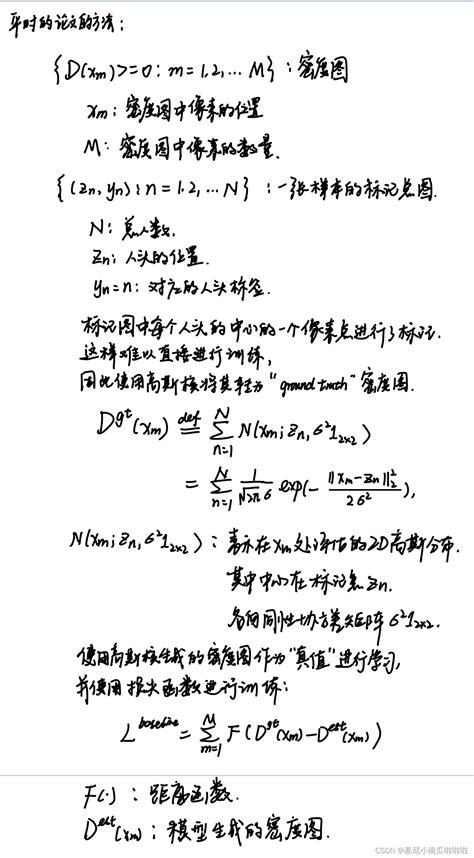 平时的论文的方法:
{D(xm)>=0: m=1,2,... M}: 密度图
xm: 密度图中像素的位置
M: 密度图中像素的数量.
{(zn, yn): n=1,2,... N}: 一张样本的标记点图.
N: 总人数.
zn: 人头的位置.
yn=n: 对应的人头标签.
标记图中每个人头的中心的一个像素点进行了标记.
这样难以直接进行训练,
因此使用高斯核将其转为"ground truth"密度图.
D^gt(xm) def= ∑_{n=1}^{N} N(xm; zn, σ²1_{2×2})
= ∑_{n=1}^{N} 1/(√2π σ) exp(- ||xm-zn||₂²/2σ²),
N(xm; zn, σ²1_{2×2}): 表示在xm处评估的2D高斯分布.
其中中心在标记点zn.
各向同性协方差矩阵 σ²1_{2×2}.
使用高斯核生成的密度图作为"真值"进行学习,
并使用损失函数进行训练:
L^baseline = ∑_{m=1}^{M} F(D^gt(xm)-D^est(xm))
F(·): 距离函数.
D^est(xm): 模型生成的密度图.
CSDN @基尼小南瓜啦啦啦